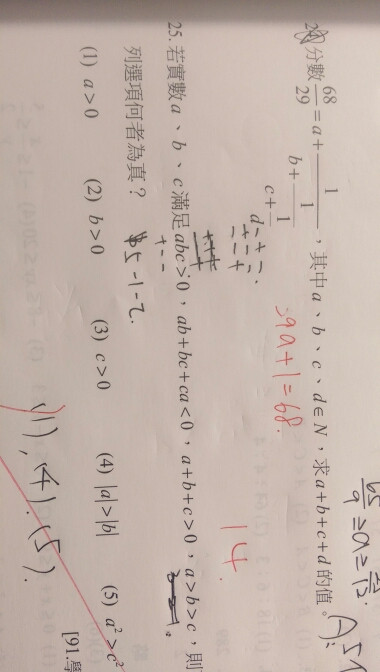 24. 分數 68/29 = a + 1/(b + 1/(c + 1/d)),其中 a、b、c、d ∈ N,求 a+b+c+d 的值。
29a+1=68.
14.
25. 若實數 a、b、c 滿足 abc>0,ab+bc+ca<0,a+b+c>0,a>b>c,則
列選項何者為真?
5 -1 -2.
(1) a>0 (2) b>0 (3) c>0 (4) |a|>|b| (5) a²>c²
[91.學
(1), (4). (5).